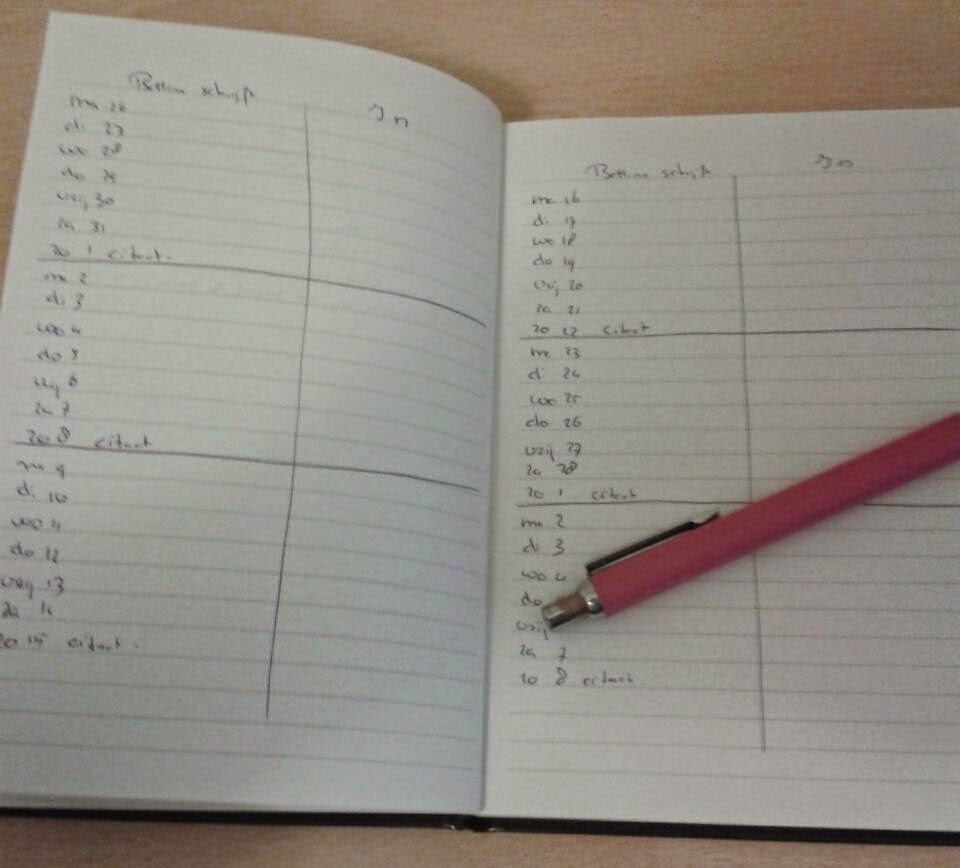 Bettina schrift In
ma 26
di 27
wo 28
do 29
vrij 30
za 31
zo 1 citaat.
ma 2
di 3
wo 4
do 5
vrij 6
za 7
zo 8 citaat
ma 9
di 10
wo 11
do 12
vrij 13
za 14
zo 15 citaat.
Bettina schrift In
ma 16
di 17
wo 18
do 19
vrij 20
za 21
zo 22 citaat
ma 23
di 24
wo 25
do 26
vrij 27
za 28
zo 1 citaat
ma 2
di 3
wo 4
do
vrij
za 7
zo 8 citaat